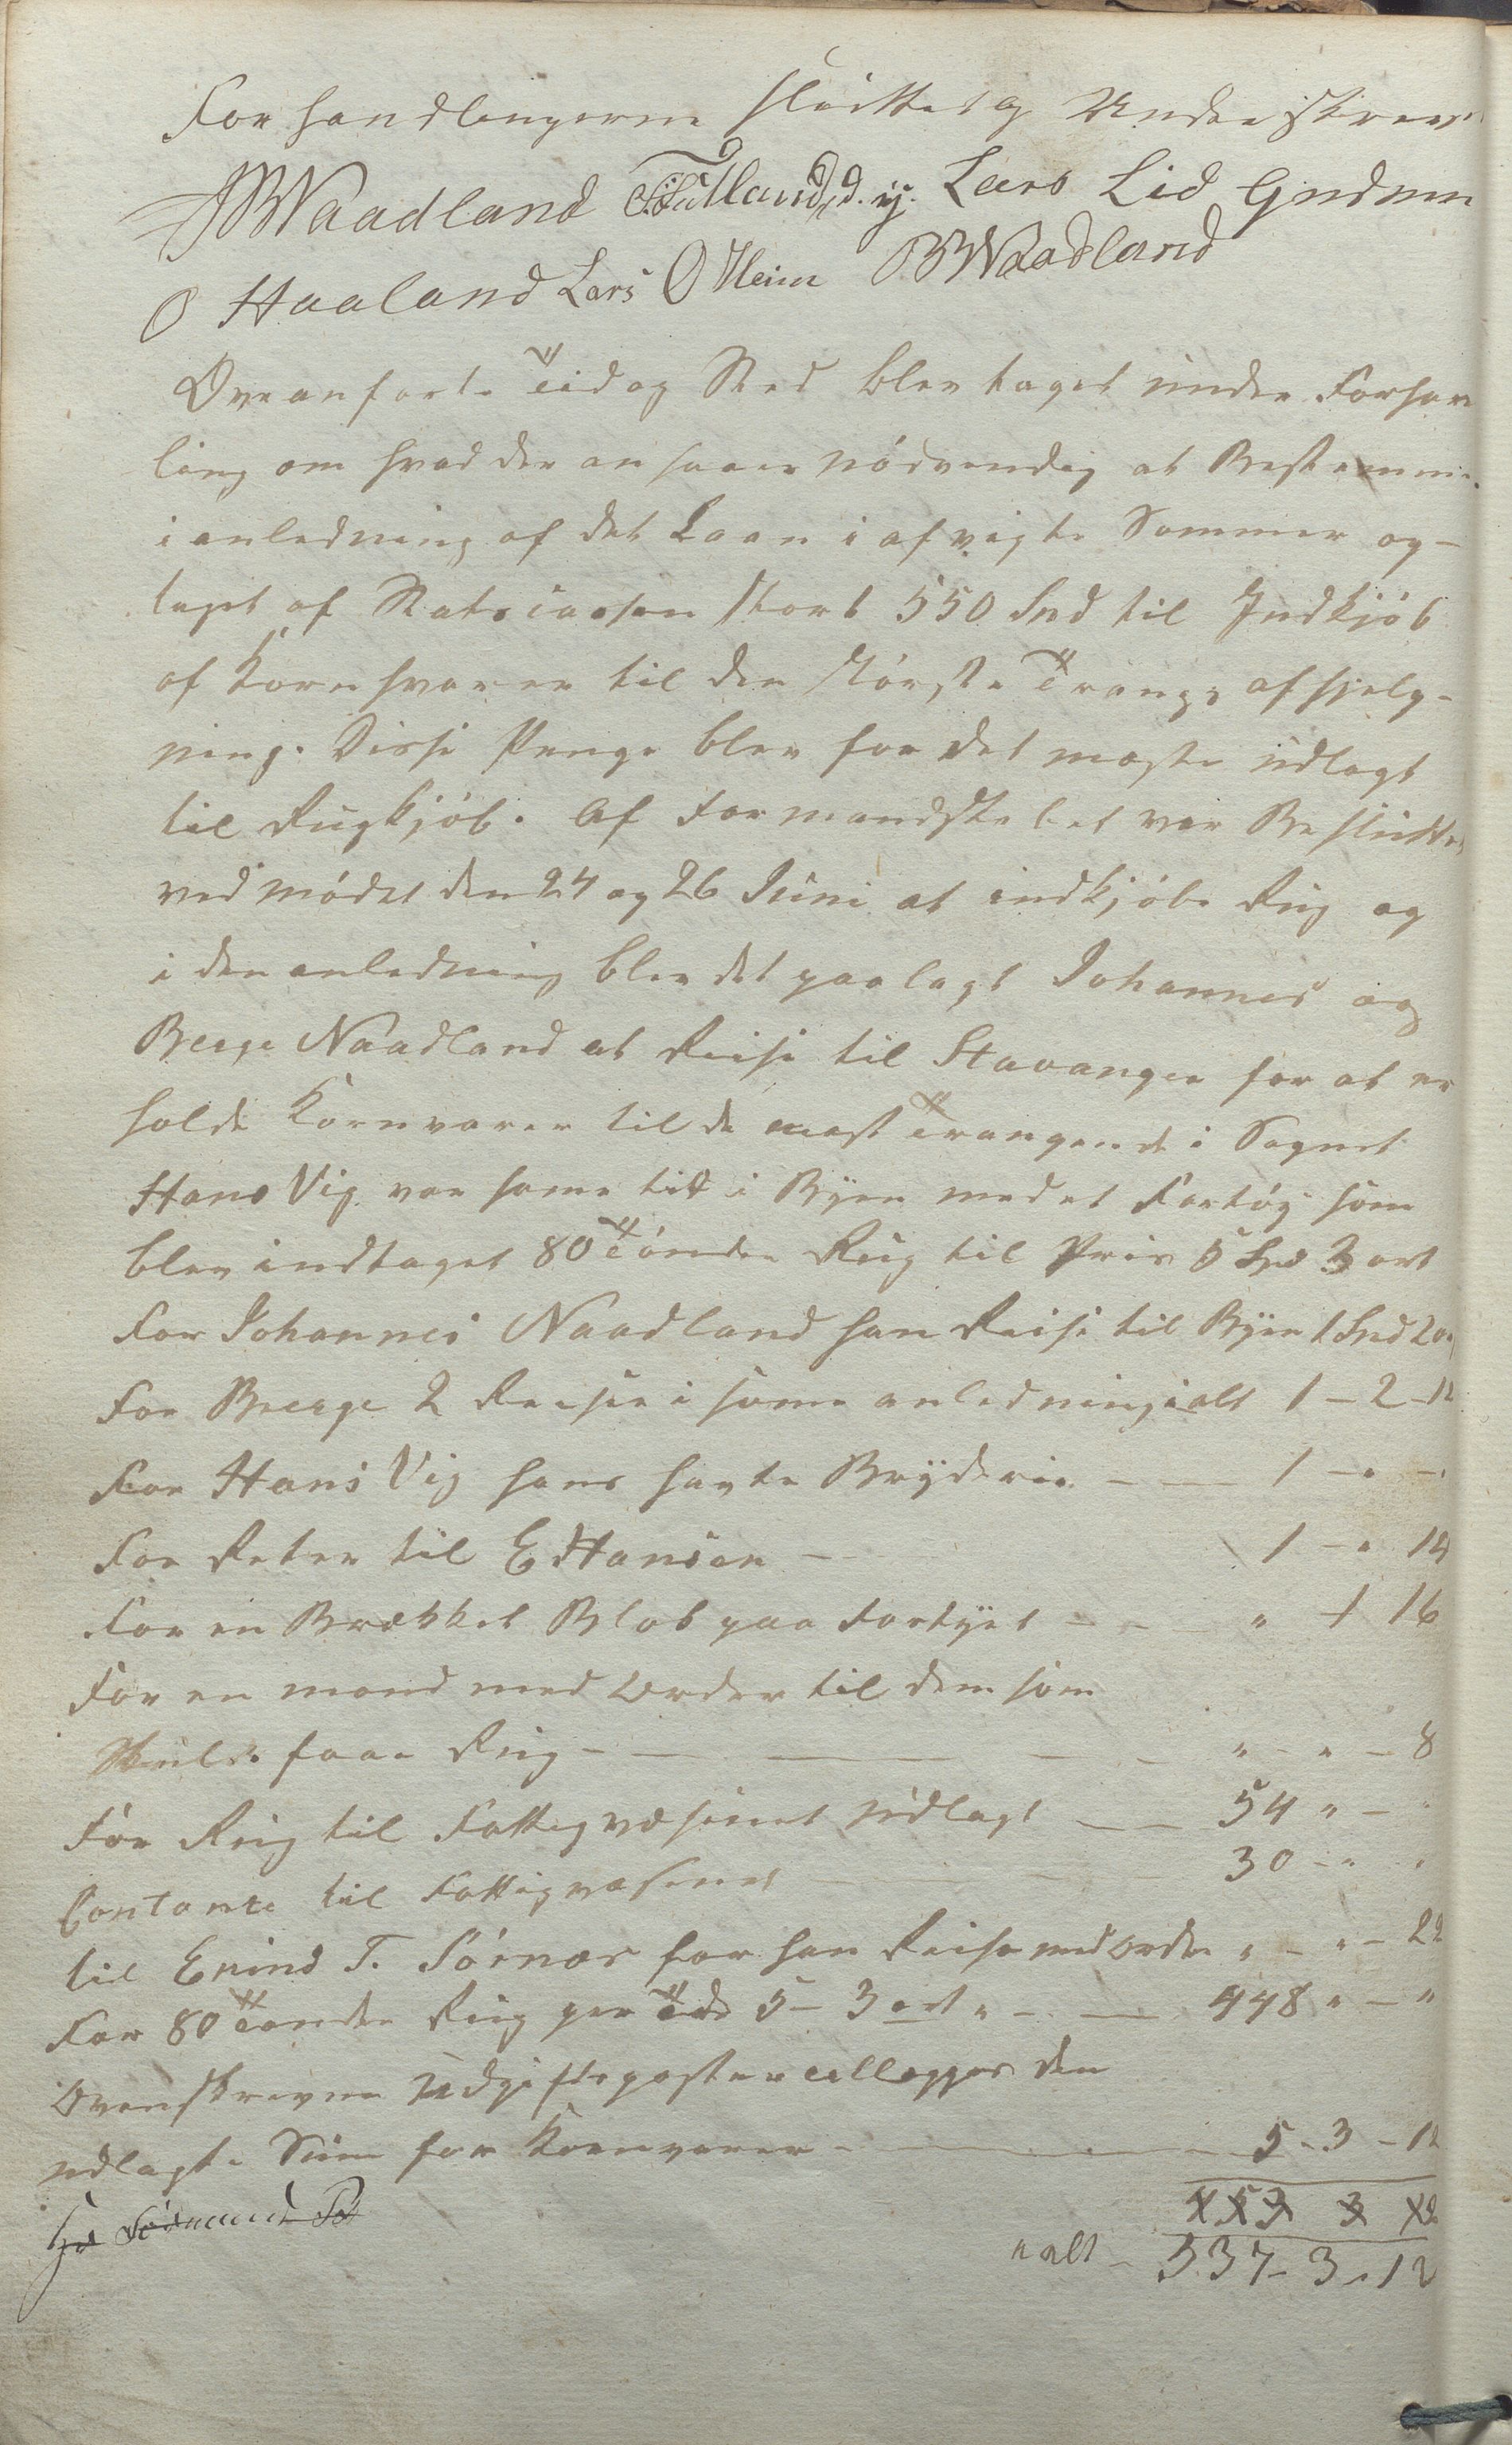 Forhandlingerne sluttet og Underskreven
JB Naadland Lars Lid Gudmun
O Haaland Lars O Heim BB Naadland
Ovvenanførte Tid og Sted blev taget under Forhand
ling om hvad der ansaaes nødvendig at Bestemme
i anledning af det Laan i afvigte Sommer op-
taget af Statscassen stort 550 Spd til Indkjøb
af Kornhvarer til den største Trangs afhjelp-
ning. Disse Penge blev for det meste udlagt
til Rugkjøb. Af Formandskabet var Besluttet
ved mødet den 24 og 26 Juni at indkjøbe Rug og
i den anledning blev det paalagt Johannes og
Berge Naadland at Reise til Stavanger for at er
holde Kornvarer til de mest Trangende i Sognet
Hans Vig var same tid i Byen med et Fartøg som
blev indtaget 80 Tønder Rug til Pris 5 Spd 3 ort
For Johannes Naadland han Reise til Byen 1 Spd 2 or
For Berge 2 Reiser i same anledning ialt 1 – 2 – 12
For Hans Vig hans havte Bryderie – – 1 – " – "
For Reter til E Hansen – 1 – " 14
For en Brækket Blok paa Fartyet – – – " 1 16
For en mand med Order til dem som
Skulde faae Rug – – – – – – " – " – 8
For Rug til Fattigvæsenet Udlagt – – 54 " – "
Contante til Fattigvæsenet – – – 30 – " "
til Enind T. Sørnes for han Reise med Order " – " – 22
For 80 Tønder Rug per Tde 5 – 3 ort " – – 448 " – "
Ovenskrevne Udgiftsposter tillægges den
udlagte Sum for Kornvarer – – – 5 – 3 – 12
3 12
ialt – 537 – 3 – 12